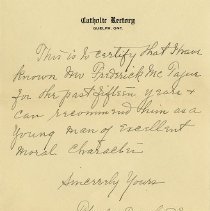 Catholic Rectory
GUELPH, ONT.
This is to certify that I have
known Mr Frederick Mc Tague
for the past fifteen years &
can recommend him as a
young man of excellent
moral character
Sincerely Yours